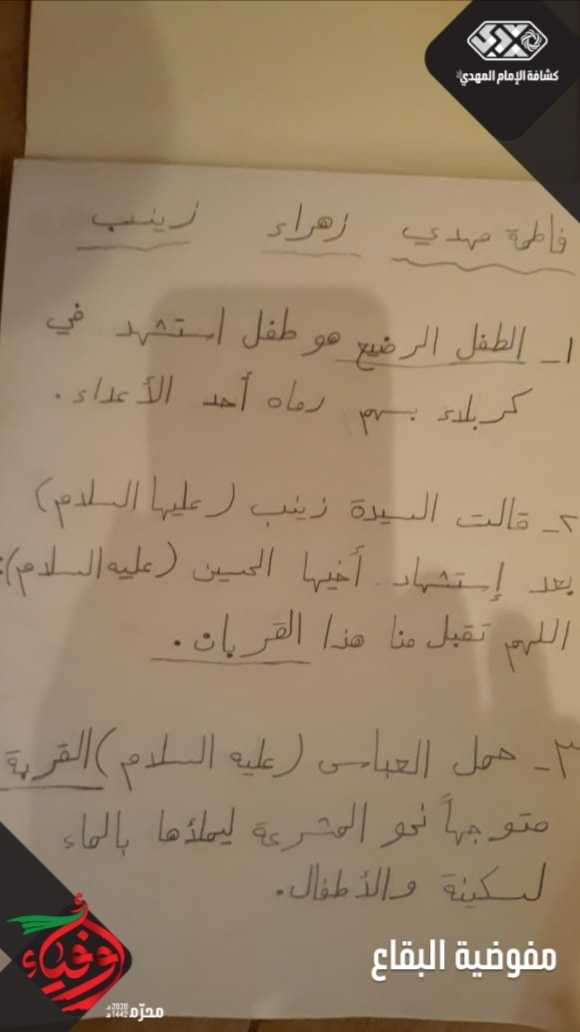 كشافة الإمام المهدي
فاطمة مهدي زهراء زينب
١ـ الطفل الرضيع هو طفل استشهد في
كربلاء بسهم رماه أحد الأعداء.
٢ـ قالت السيدة زينب (عليها السلام)
بعد إستشهاد أخيها الحسين (عليه السلام):
اللهم تقبل منا هذا القربان.
٣ـ حمل العباس (عليه السلام) القربة
متوجهاً نحو المشرعة ليملأها بالماء
لسكينة والأطفال.
مفوضية البقاع
أوفياء
محرّم 2020م 1442هـ